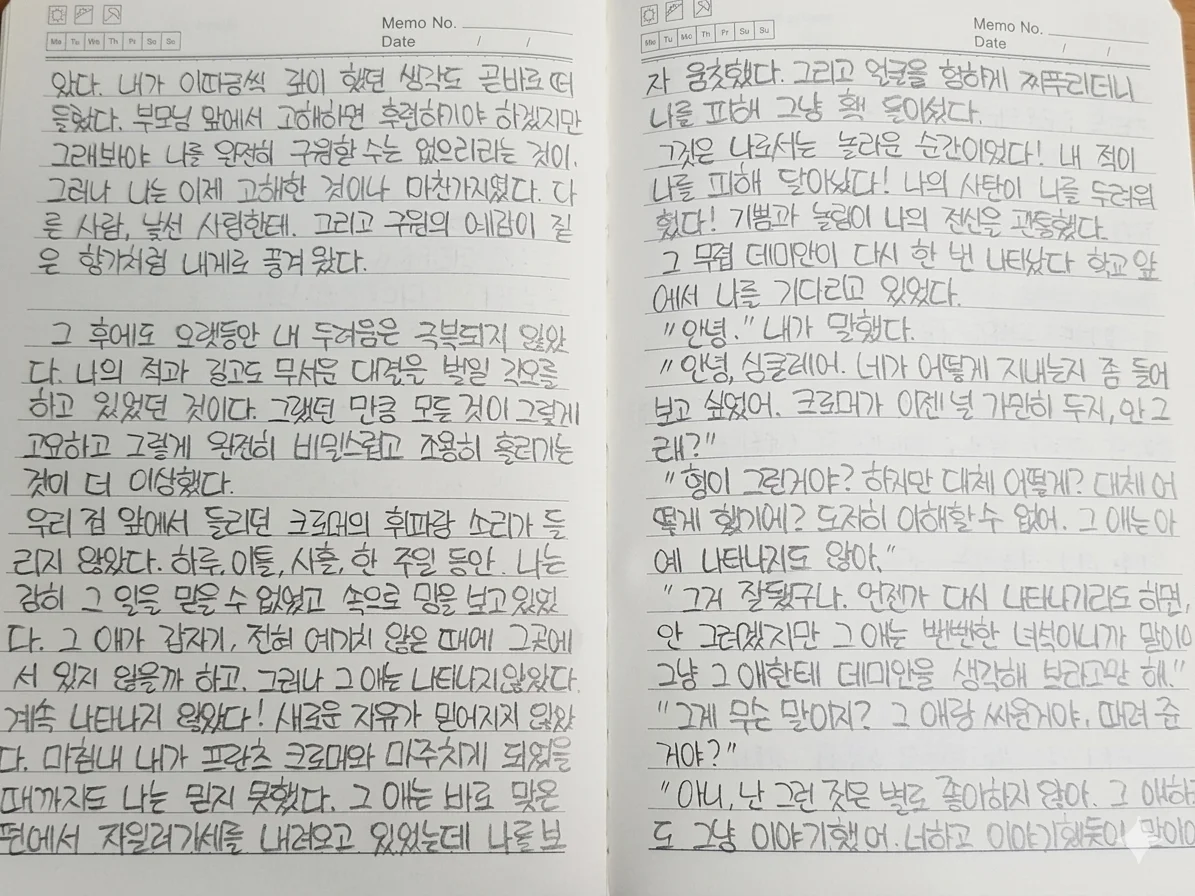 Memo No.
Date / /
Mo Tu We Th Fr Sa Su
았다. 내가 이따금씩 깊이 했던 생각도 곧바로 떠
들렸다. 부모님 앞에서 고해하면 후련하기야 하겠지만
그래봐야 나를 완전히 구원할 수는 없으리라는 것이.
그러나 나는 이제 고해한 것이나 마찬가지였다. 다
른 사람, 낯선 사람한테. 그리고 구원의 예감이 짙
은 향기처럼 내게로 풍겨 왔다.
그 후에도 오랫동안 내 두려움은 극복되지 않았
다. 나의 적과 길고도 무서운 대결을 벌일 각오를
하고 있었던 것이다. 그랬던 만큼 모든 것이 그렇게
고요하고 그렇게 완전히 비밀스럽고 조용히 흘러가는
것이 더 이상했다.
우리 집 앞에서 들리던 크로머의 휘파람 소리가 들
리지 않았다. 하루, 이틀, 사흘, 한 주일 동안. 나는
감히 그 일을 믿을 수 없었고 속으로 망을 보고 있었
다. 그 애가 갑자기, 전혀 예기치 않은 때에 그곳에
서 있지 않을까 하고. 그러나 그 애는 나타나지 않았다.
계속 나타나지 않았다! 새로운 자유가 믿어지지 않았
다. 마침내 내가 프란츠 크로머와 마주치게 되었을
때까지도 나는 믿지 못했다. 그 애는 바로 맞은
편에서 자일러가세를 내려오고 있었는데 나를 보
Memo No.
Date / /
자 움칫했다. 그리고 얼굴을 험하게 찌푸리더니
나를 피해 그냥 홱 돌아섰다.
그것은 나로서는 놀라운 순간이었다! 내 적이
나를 피해 달아났다! 나의 사탄이 나를 두려워
했다! 기쁨과 놀람이 나의 전신은 관통했다.
그 무렵 데미안이 다시 한 번 나타났다 학교 앞
에서 나를 기다리고 있었다.
"안녕." 내가 말했다.
"안녕, 싱클레어. 네가 어떻게 지내는지 좀 들어
보고 싶었어. 크로머가 이젠 널 가만히 두지, 안 그
래?"
"형이 그린거야? 하지만 대체 어떻게? 대체 어
떻게 했기에? 도저히 이해할 수 없어. 그 애는 아
예 나타나지도 않아."
"그거 잘됐구나. 언젠가 다시 나타나기라도 하면,
안 그러겠지만 그 애는 뻔뻔한 녀석이니까 말이야
그냥 그 애한테 데미안을 생각해 보라고만 해."
"그게 무슨 말이지? 그 애랑 싸운거야, 때려 준
거야?"
"아니, 난 그런 짓은 별로 좋아하지 않아. 그 애하
도 그냥 이야기했어. 너하고 이야기했듯이 말이야